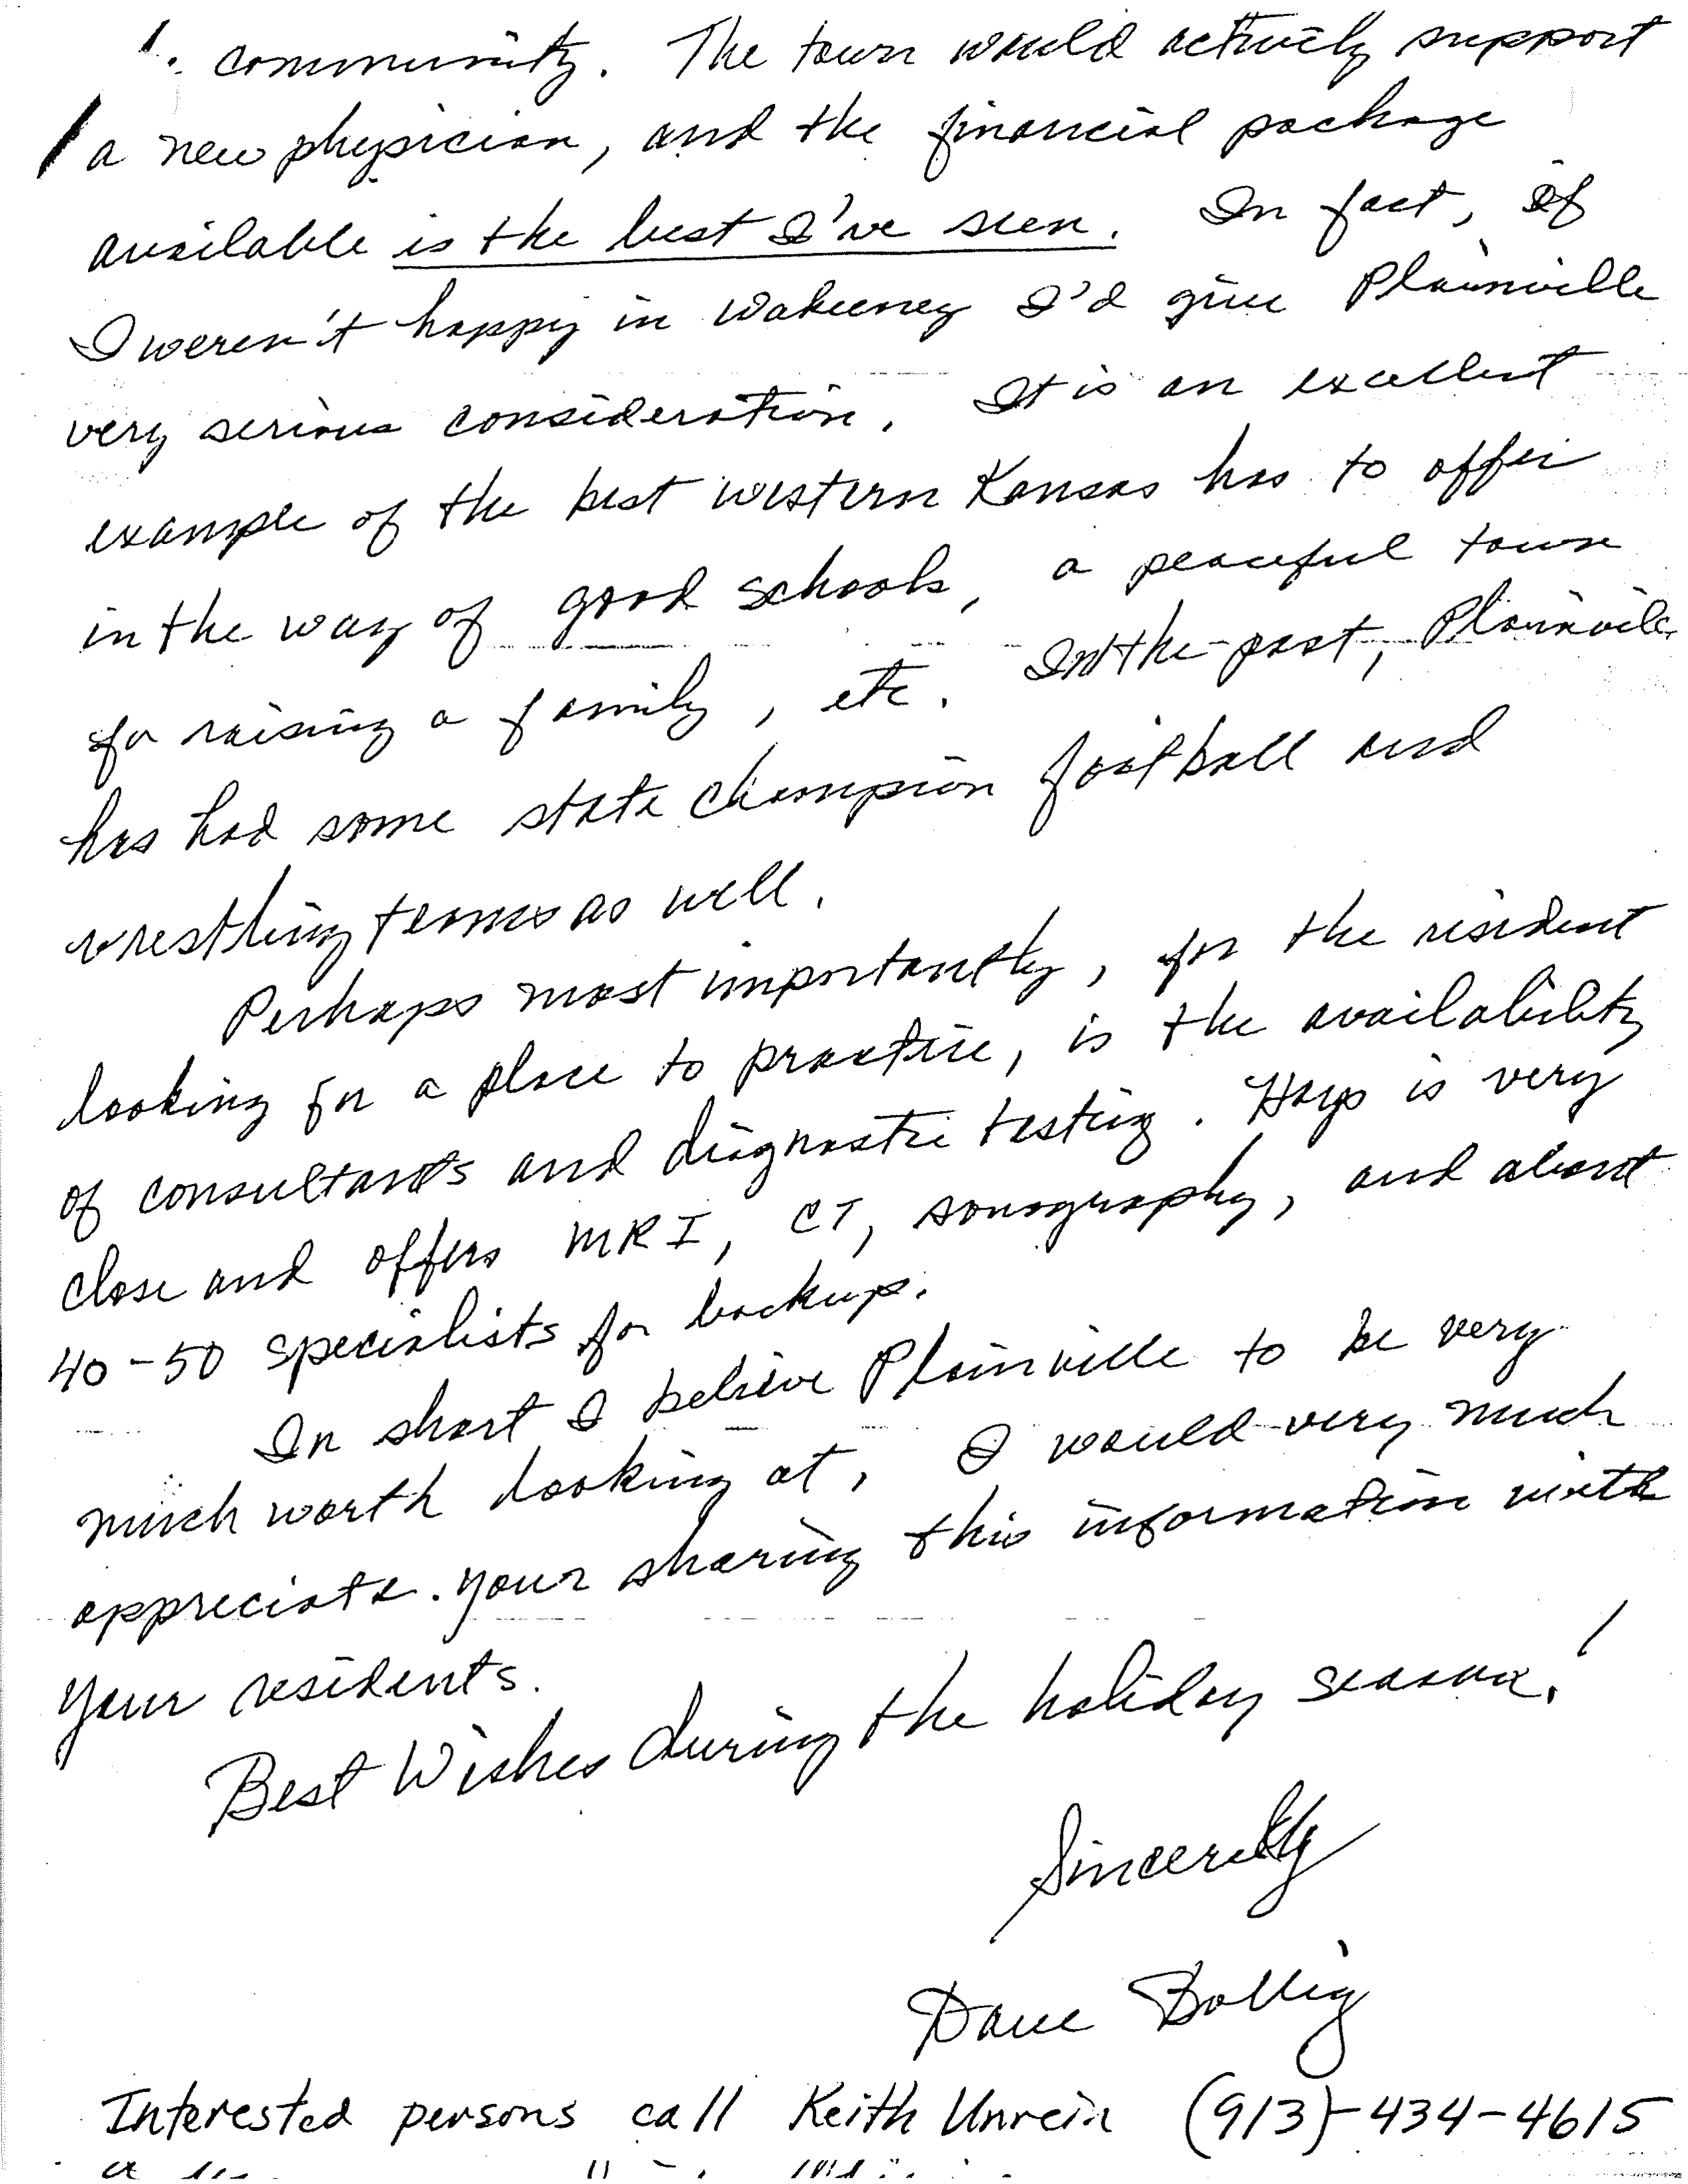 community. The town would actively support
a new physician, and the financial package
available is the best I've seen. In fact, if
I weren't happy in Wakeeney I'd give Plainville
very serious consideration. It is an excellent
example of the best western Kansas has to offer
in the way of good schools, a peaceful town
for raising a family, etc. In the past, Plainville
has had some state champion football and
wrestling teams as well.
Perhaps most importantly, for the resident
looking for a place to practice, is the availability
of consultants and diagnostic testing. Hays is very
close and offers MRI, CT, sonography, and about
40-50 specialists for backup.
In short I believe Plainville to be very
much worth looking at. I would very much
appreciate your sharing this information with
your residents.
Best Wishes during the holiday season!
Sincerely
Dave Bollig
Interested persons call Keith Unrein (913)-434-4615